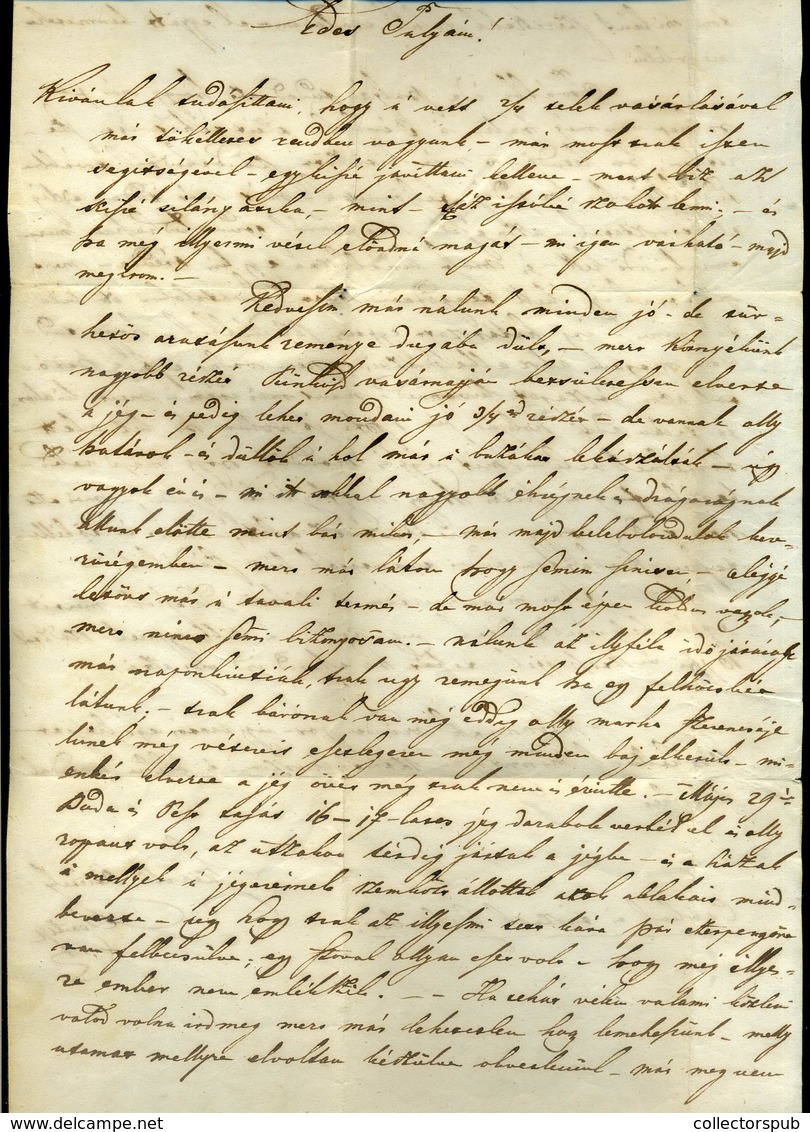 Édes Gulyám!
Kivánlak tudósittani, hogy a vett 2/4 telek vásárlásával
már tökélletes rendben vagyunk – már most csak isten
segittségével – egykissé javittani kellene – mert biz az
kissé silányatska, – mint – szokott lenni; – és
ha még illyesmi vétel előadná magát – mi igen várható – majd
megirom. –
Kedvesim már nálunk minden jó – de
aratásunk reménye dugába dült, – mert környékünk
nagyobb részét Pünkösd vasárnapján becsületessen elverte
a jég – és pedig lehet mondani jó 3/4ed részét – de vannak olly
határok – és düllők a hol már a buzákat lekaszálták – úgy
vagyok én is – mi itt sokkal nagyobb éhségnek és drágaságnak
állunk előtte mint bár mikor, – már majd belebolondulok keserüségemben
– mert már látom hogy semim sincsen – elégé
már a tavali termés – de már most épen
mert nincs semi bizonyosam. – nálunk az illyféle idő járások
már naponkintiák, csak ugy remegünk ha egy felhőcskét
látunk; – csak bátyónál van még eddig olly marha szerencséje
kinek még vetéseit esetlegesen még minden baj elkerült – mienket
elverte a jég övét még csak nem is érintte. – Május 29én
Buda és Pest táját 16–17–latos jég darabok verték el és olly
ropant volt, az utzákon térdig jártak a jégbe – és a házak
a mellyek a jégesésnek szemközt állottak azok ablakait mind
beverte – ugy hogy csak az illyesmi tett kára pár ezer pengőre
van felbecsülve; egy szóval ollyan eset volt – hogy még illyenre
ember nem emlékszik. – – Ha tehát vélem valami közleni
valód volna ird meg mert már lehetetlen hogy lemehessünk – melly
utamat mellyre elvoltam készülve – már meg nem
collectorspub